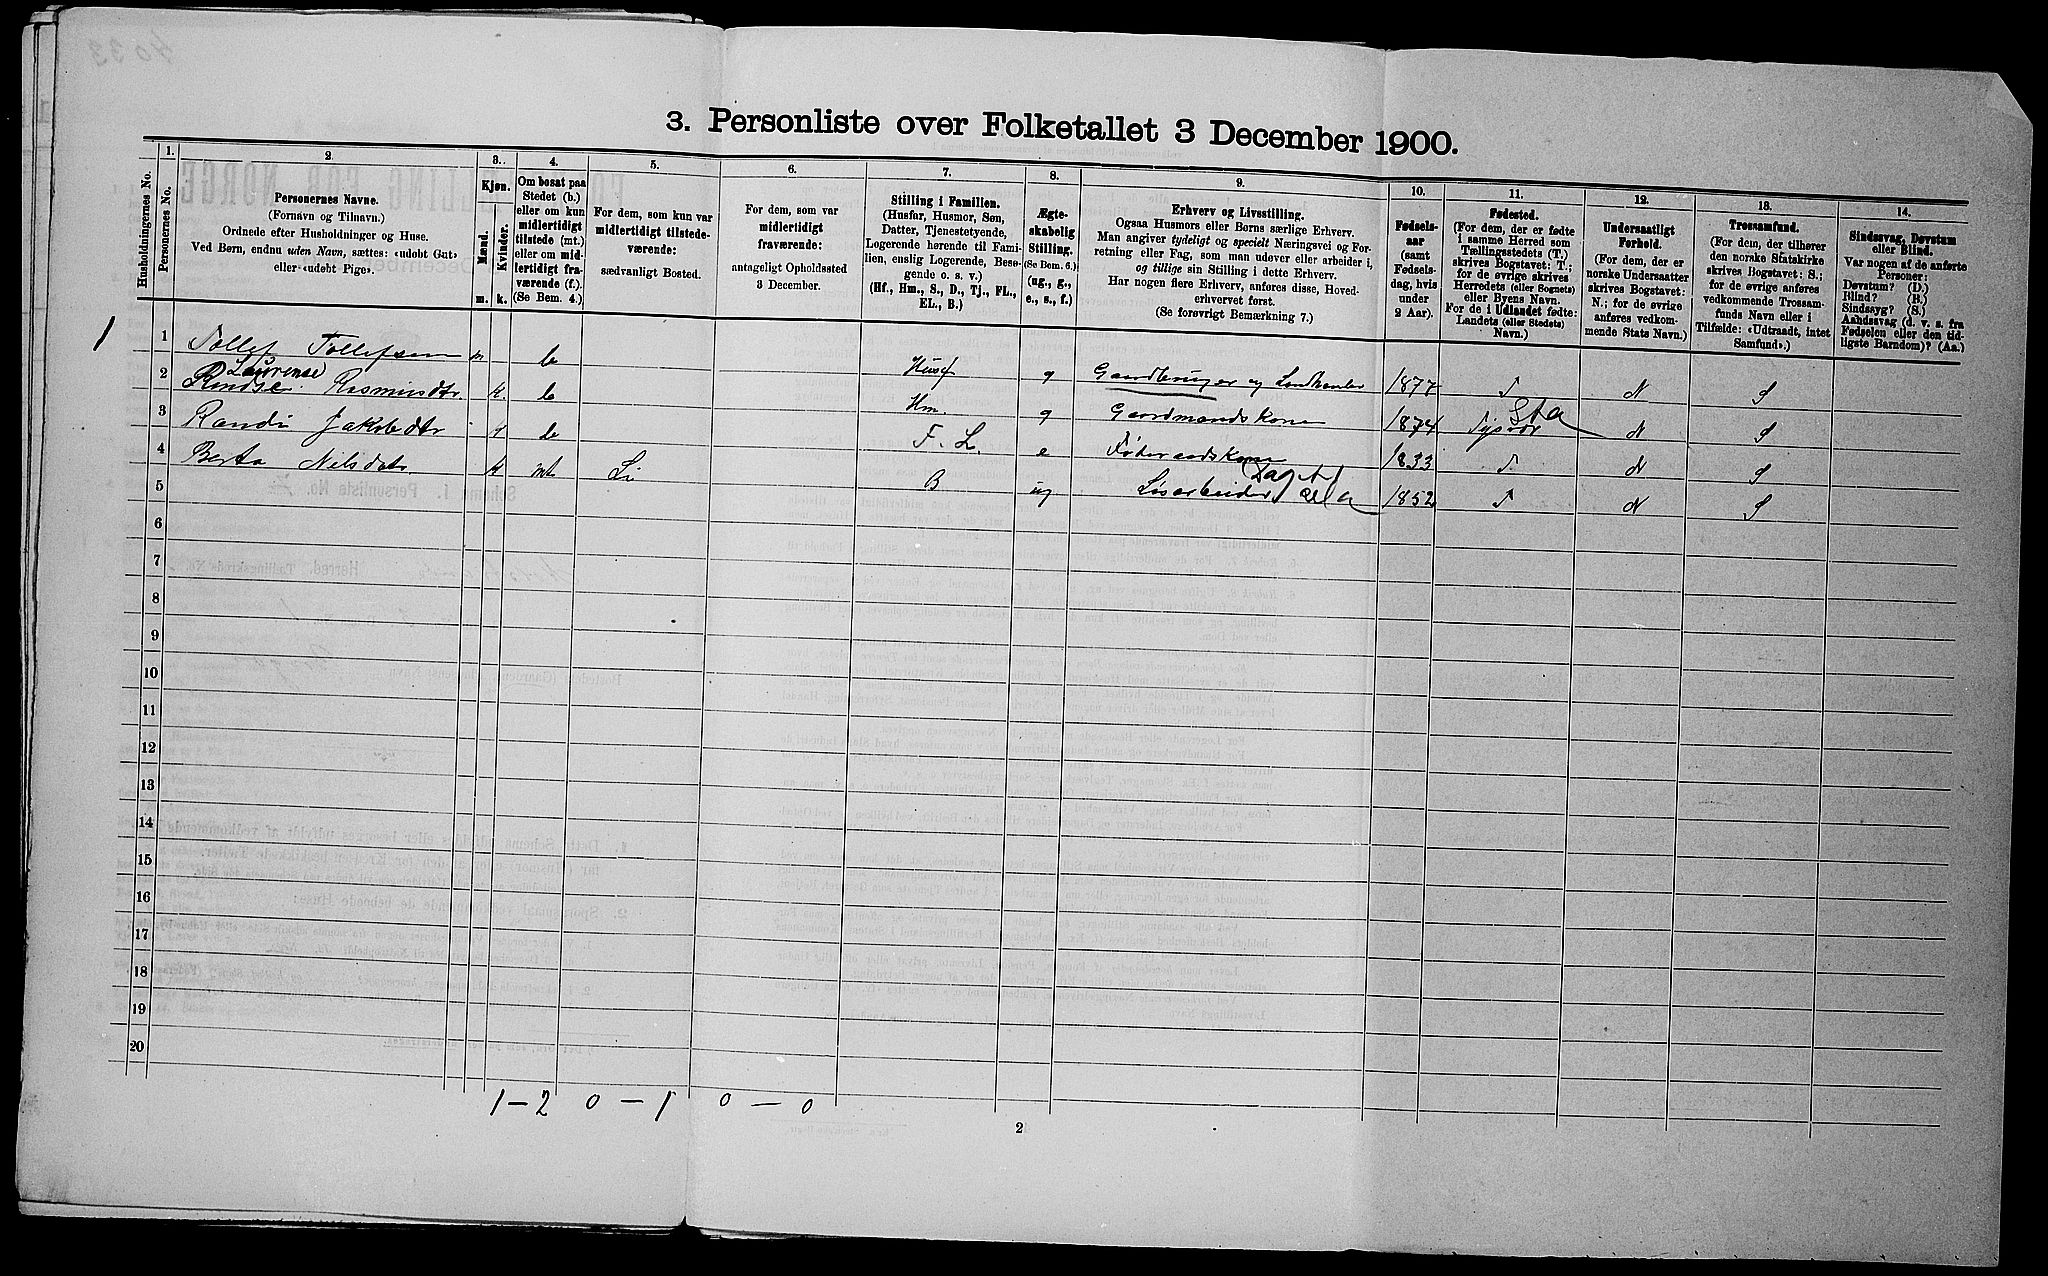 3. Personliste over Folketallet 3 December 1900.
Husholdningernes No.
1.
Personernes No.
2.
Personernes Navne.
(Fornavn og Tilnavn.)
Ordnede efter Husholdninger og Huse.
Ved Børn, endnu uden Navn, sættes: «udøbt Gut»
eller «udøbt Pige».
3.
Kjøn.
Mænd.
Kvinder.
m.
k.
4.
Om bosat paa
Stedet (b.)
eller om kun
midlertidigt
tilstede (mt.)
eller om mid-
lertidigt fra-
værende (f.).
(Se Bem. 4.)
5.
For dem, som kun var
midlertidigt tilstede-
værende:
sædvanligt Bosted.
6.
For dem, som var
midlertidigt
fraværende:
antageligt Opholdssted
3 December.
7.
Stilling i Familien.
(Husfar, Husmor, Søn,
Datter, Tjenestetyende,
Logerende hørende til Fami-
lien, enslig Logerende, Besø-
gende o. s. v.)
(Hf., Hm., S., D., Tj., FL.,
EL., B.)
8.
Ægte-
skabelig
Stilling.
(Se Bem. 6.)
(ug., g.,
e., s., f.)
9.
Erhverv og Livsstilling.
Ogsaa Husmors eller Børns særlige Erhverv.
Man angiver tydeligt og specielt Næringsvei og For-
retning eller Fag, som man udøver eller arbeider i,
og tillige sin Stilling i dette Erhverv.
Har nogen flere Erhverv, anføres disse, Hoved-
erhvervet først.
(Se forøvrigt Bemærkning 7.)
10.
Fødsels-
aar
(samt
Fødsels-
dag, hvis
under
2 Aar).
11.
Fødested.
(For dem, der er fødte
i samme Herred som
Tællingsstedets (T.)
skrives Bogstavet: T.;
for de øvrige skrives
Herredets (eller Sognets)
eller Byens Navn.
For de i Udlandet fødte:
Landets (eller Stedets)
Navn.)
12.
Undersaatligt
Forhold.
(For dem, der er
norske Undersaatter
skrives Bogstavet:
N.; for de øvrige
anføres vedkom-
mende Stats Navn.)
13.
Trossamfund.
(For dem, der tilhører
den norske Statskirke
skrives Bogstavet: S.;
for de øvrige anføres
vedkommende Trossam-
funds Navn eller i
Tilfælde: «Udtraadt, intet
Samfund».)
14.
Sindssvag, Døvstum
eller Blind.
Var nogen af de anførte
Personer:
Døvstum? (D.)
Blind? (B.)
Sindssyg? (S.)
Aandssvag (d. v. s. fra
Fødselen eller den tid-
ligste Barndom)? (Aa.)
1 1 Tollef Tollefsen m b Husf g Gaardbruger og Landhandler 1877 T N S
Laurense
2 Rasmusdtr. k. b Hm. g Gaardmandskone 1874 Tysvær N S
3 Randi Jakobdtr b F. L. e Føderaadskone 1833 T N S
4 Berta Nilsdatr k mt Li B ug Løsarbeider 1852 T N S
5
6
7
8
9
10
11
12
13
14
15
16
17
18
19
20
1 – 2 0 – 1 0 – 0
2